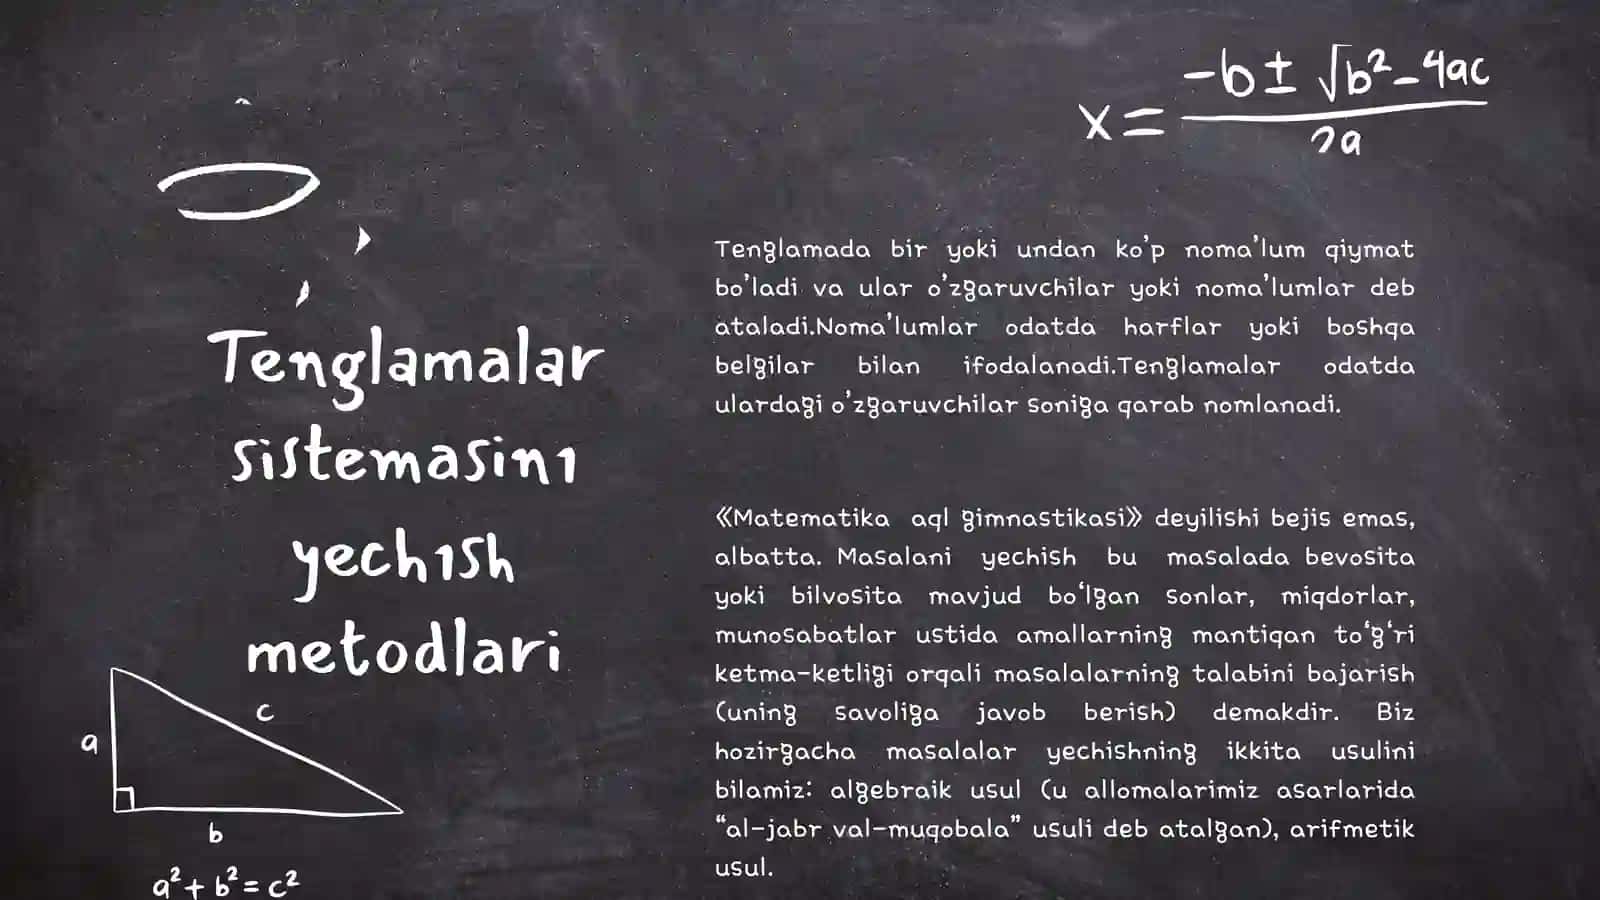 x = -b ± √b² - 4ac
2a
Tenglamalar
sistemasin1
yech1sh
metodlari
Tenglamada bir yoki undan ko'p noma'lum qiymat
bo'ladi va ular o'zgaruvchilar yoki noma'lumlar deb
ataladi.Noma'lumlar odatda harflar yoki boshqa
belgilar bilan ifodalanadi.Tenglamalar odatda
ulardagi o'zgaruvchilar soniga qarab nomlanadi.
《Matematika aql gimnastikasi》 deyilishi bejis emas,
albatta. Masalani yechish bu masalada bevosita
yoki bilvosita mavjud bo‘lgan sonlar, miqdorlar,
munosabatlar ustida amallarning mantiqan to‘g‘ri
ketma-ketligi orqali masalalarning talabini bajarish
(uning savoliga javob berish) demakdir. Biz
hozirgacha masalalar yechishning ikkita usulini
bilamiz: algebraik usul (u allomalarimiz asarlarida
“al-jabr val-muqobala” usuli deb atalgan), arifmetik
usul.
c
a
b
a² + b² = c²